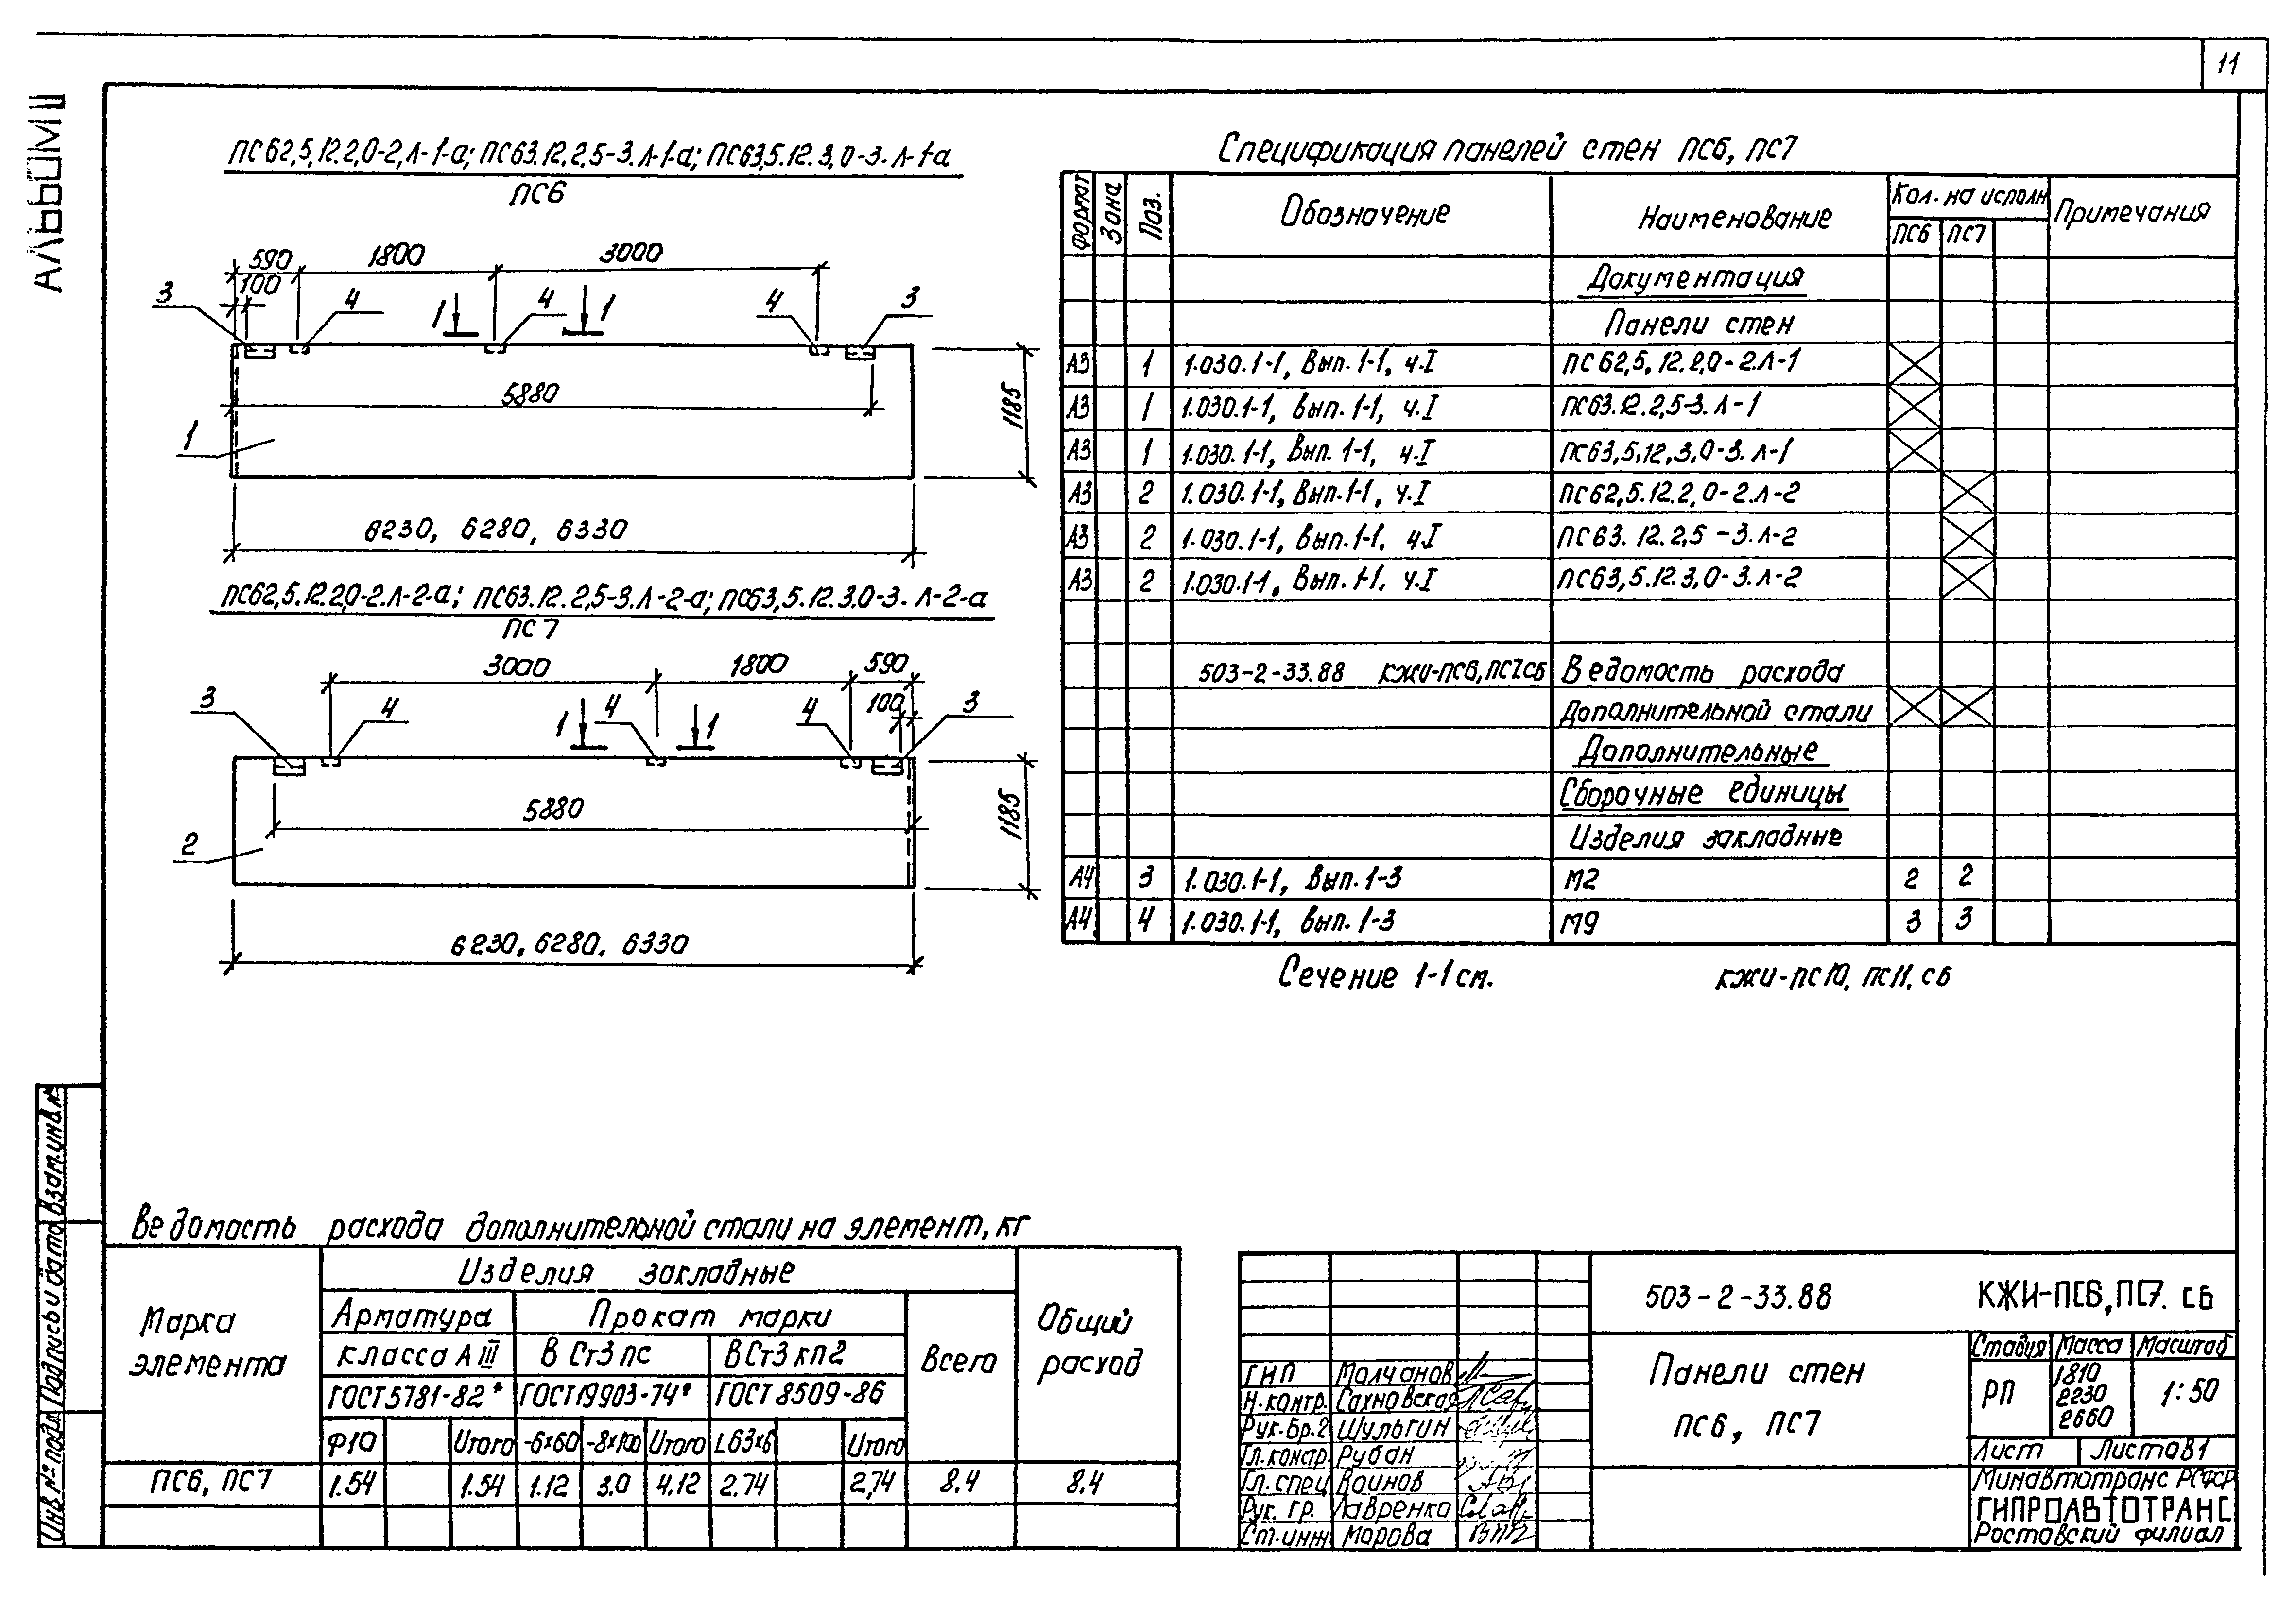 11
АЛЬБОМ II
ПС62,5.12.2,0-2,Л-1-а; ПС63.12.2,5-3.Л-1-а; ПС63,5.12.3,0-3.Л-1-а
ПС6
590 1800 3000
100
3 4 1 4 1 4 3
5880
1185
1
6230, 6280, 6330
ПС62,5.12.2,0-2.Л-2-а; ПС63.12.2,5-3.Л-2-а; ПС63,5.12.3.0-3.Л-2-а
ПС7
3000 1800 590
100
3 4 1 4 1 4 3
5880
1185
2
6230, 6280, 6330
Спецификация панелей стен ПС6, ПС7
Формат Зона Поз. Обозначение Наименование Кол. на исполн Примечания
ПС6 ПС7
Документация
Панели стен
А3 1 1.030.1-1, Вып. 1-1, ч.I ПС62,5,12.2,0-2.Л-1
А3 1 1.030.1-1, Вып. 1-1, ч.I ПС63.12.2,5-3.Л-1
А3 1 1.030.1-1, Вып. 1-1, ч.I ПС63,5,12,3,0-3.Л-1
А3 2 1.030.1-1, Вып.1-1, ч.I ПС62,5.12.2,0-2.Л-2
А3 2 1.030.1-1, Вып.1-1, ч.I ПС63.12.2,5-3.Л-2
А3 2 1.030.1-1, Вып. 1-1, ч.I ПС63,5.12.3,0-3.Л-2
503-2-33.88 КЖИ-ПС6,ПС7.СБ Ведомость расхода
Дополнительной стали
Дополнительные
Сборочные единицы
Изделия закладные
А4 3 1.030.1-1, Вып.1-3 М2 2 2
А4 4 1.030.1-1, Вып.1-3 М9 3 3
Сечение 1-1 см. КЖИ-ПС10, ПС11, СБ
Ведомость расхода дополнительной стали на элемент, кг
Марка элемента Изделия закладные Общий расход
Арматура Прокат марки Всего
класса А III В Ст3 пс В Ст3 кп2
ГОСТ 5781-82* ГОСТ 19903-74* ГОСТ 8509-86
Ф10 Итого -6х60 -8х100 Итого L63х6 Итого
ПС6, ПС7 1.54 1.54 1.12 3.0 4.12 2.74 2,74 8.4 8.4
Взам.инв.№
Подпись и дата
Инв № подл
503-2-33.88 КЖИ-ПС6,ПС7. СБ
Панели стен
ПС6, ПС7
Стадия Масса Масштаб
РП 1810 2230 2660 1:50
Лист Листов 1
Минавтотранс РСФСР
ГИПРОАВТОТРАНС
Ростовский филиал
ГИП Молчанов
Н.контр. Сахновская
Рук.бр.2 Шульгин
Гл.констр Рубан
Гл.спец Воинов
Рук. гр. Лавренко
Ст.инж Морова